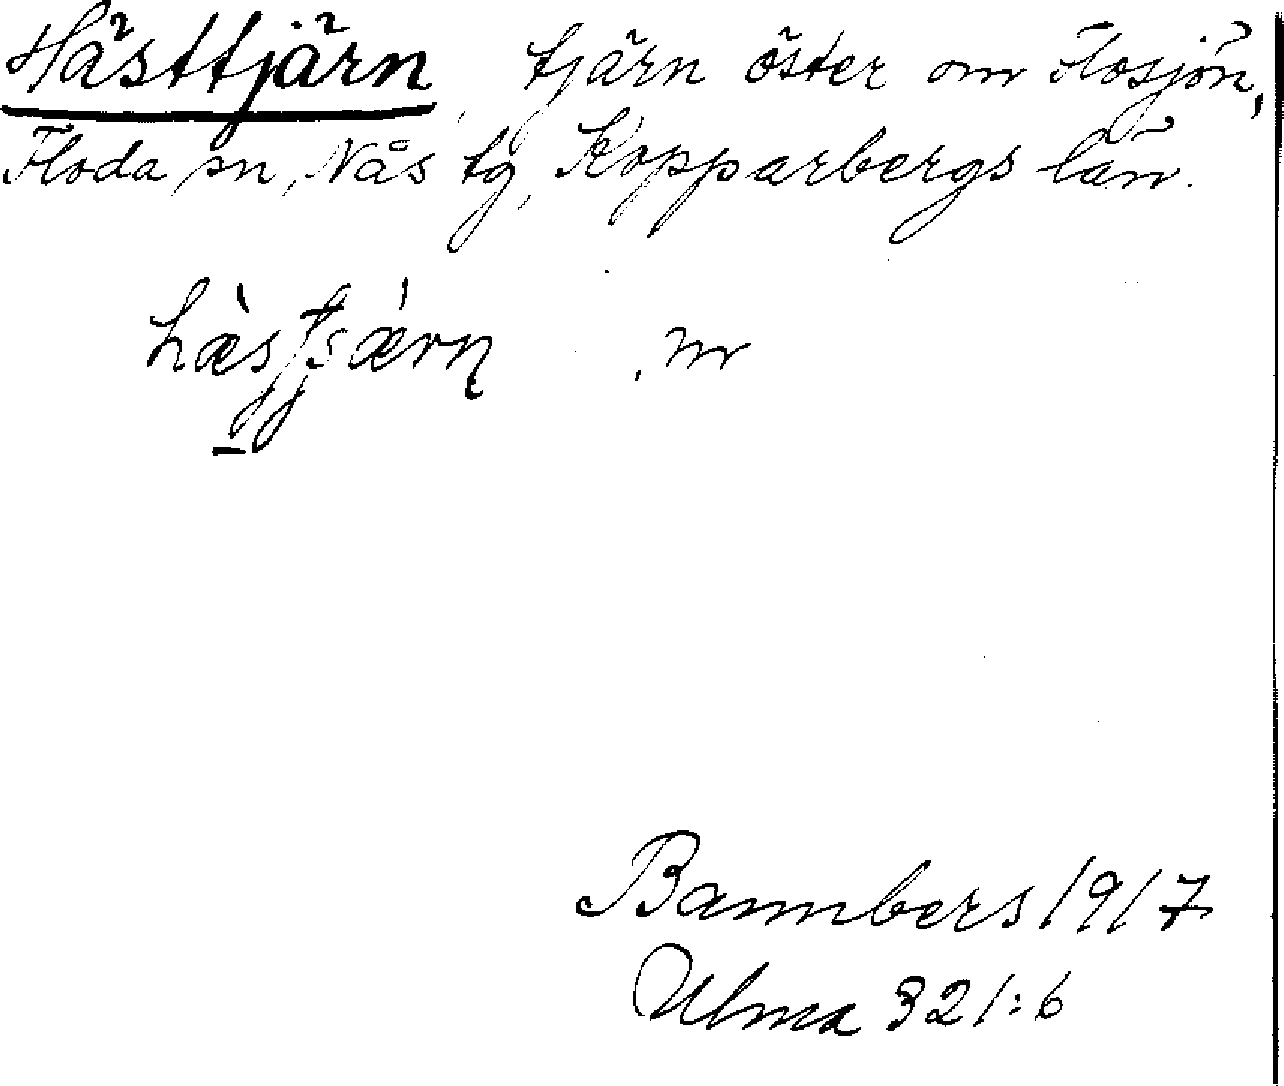 Hästtjärn, tjärn öster om Flosjön,
Floda sn, Nås tg, Kopparbergs län.
nr
Bannbers 1917
Ulma 321:6